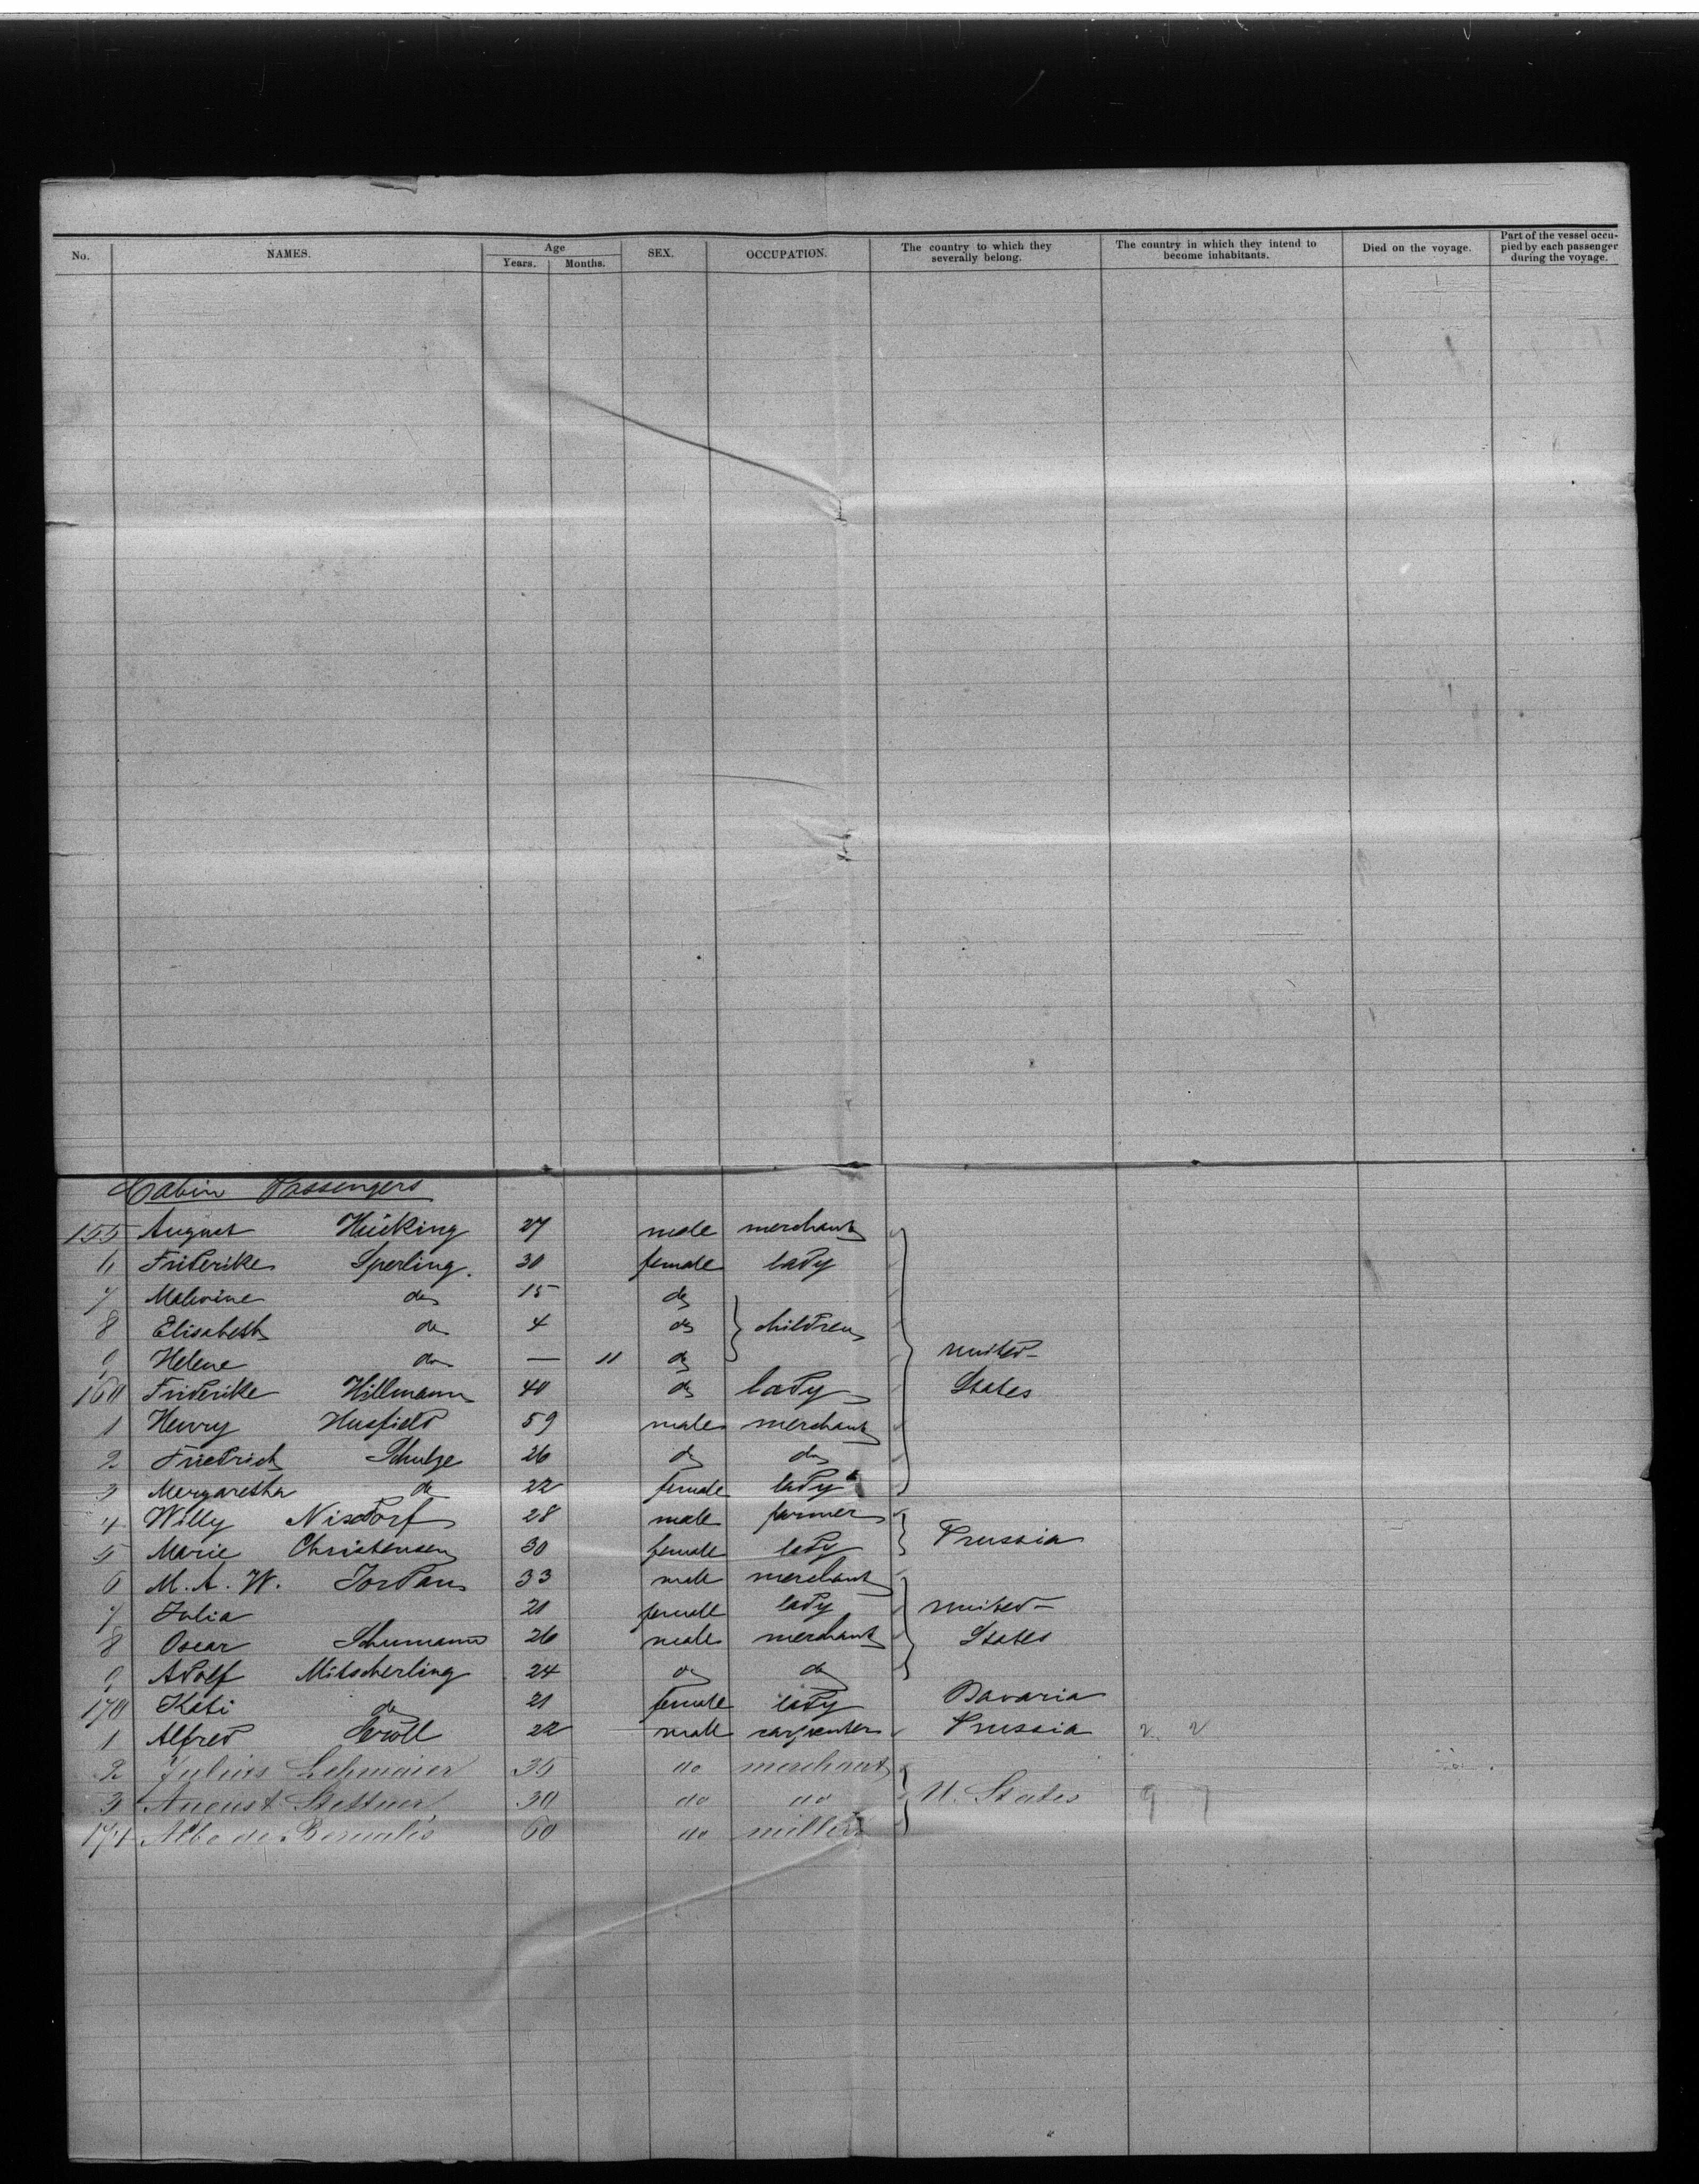 No. NAMES. Age Years. Months. SEX. OCCUPATION. The country to which they severally belong. The country in which they intend to become inhabitants. Died on the voyage. Part of the vessel occupied by each passenger during the voyage.
Cabin Passengers
155 August Hücking 27 male merchant
6 Friderike Sperling. 30 female lady
7 Malwine do 15 do
8 Elisabeth do 4 do children
9 Helene do — 11 do United
160 Friderike Hillmann 40 do lady States
1 Henry Husfield 59 male merchant
2 Friedrich Schulze 26 do do
3 Margaretha do 22 female lady
4 Willy Nisdorf 28 male farmer
5 Marie Christensen 30 female lady Prussia
6 M. A. W. Jordan 33 male merchant
7 Julia 21 female lady United
8 Oscar Schumann 26 male merchant States
9 Adolf Mitscherling 24 do do
170 Kati do 21 female lady Bavaria
1 Alfred 22 male carpenter Prussia 2 2
2 Julius Lehmaier 35 do merchant
3 August Stettner 30 do do U. States
174 60 do miller